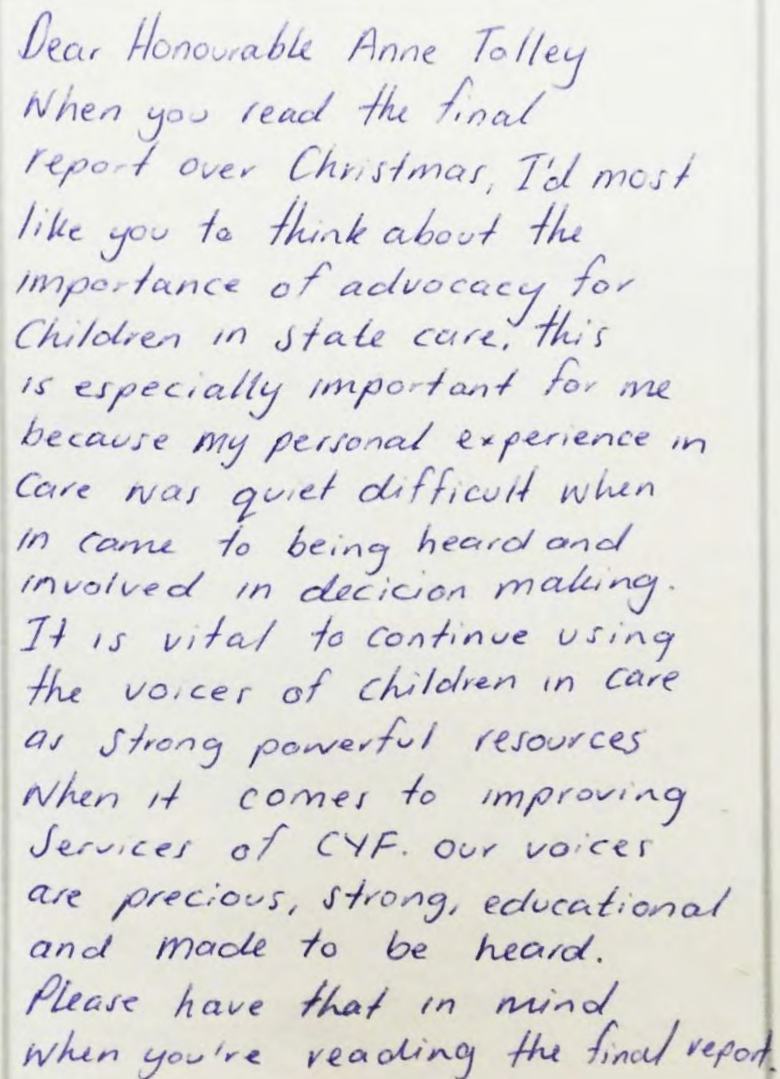 Dear Honourable Anne Tolley
When you read the final
report over Christmas, I'd most
like you to think about the
importance of advocacy for
Children in state care. this
is especially important for me
because my personal experience in
Care was quiet difficult when
in came to being heard and
involved in decicion making.
It is vital to continue using
the voices of children in care
as strong powerful resources
When it comes to improving
Services of CYF. Our voices
are precious, strong, educational
and made to be heard.
Please have that in mind
when you're reading the final report.